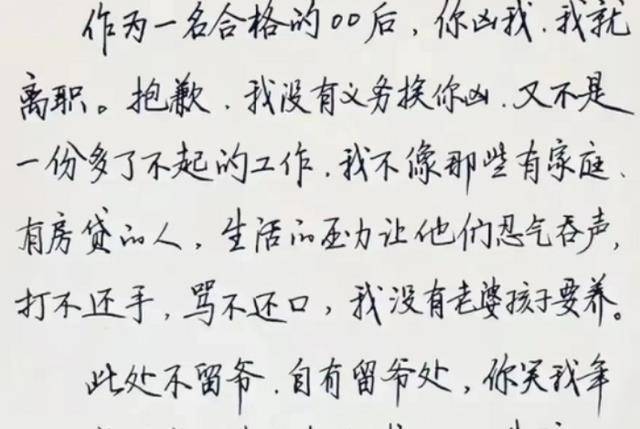 作为一名合格的00后，你凶我，我就
离职。抱歉，我没有义务挨你凶，又不是
一份多了不起的工作，我不像那些有家庭、
有房贷的人，生活的压力让他们忍气吞声，
打不还手，骂不还口，我没有老婆孩子要养。
此处不留爷，自有留爷处，你笑我年